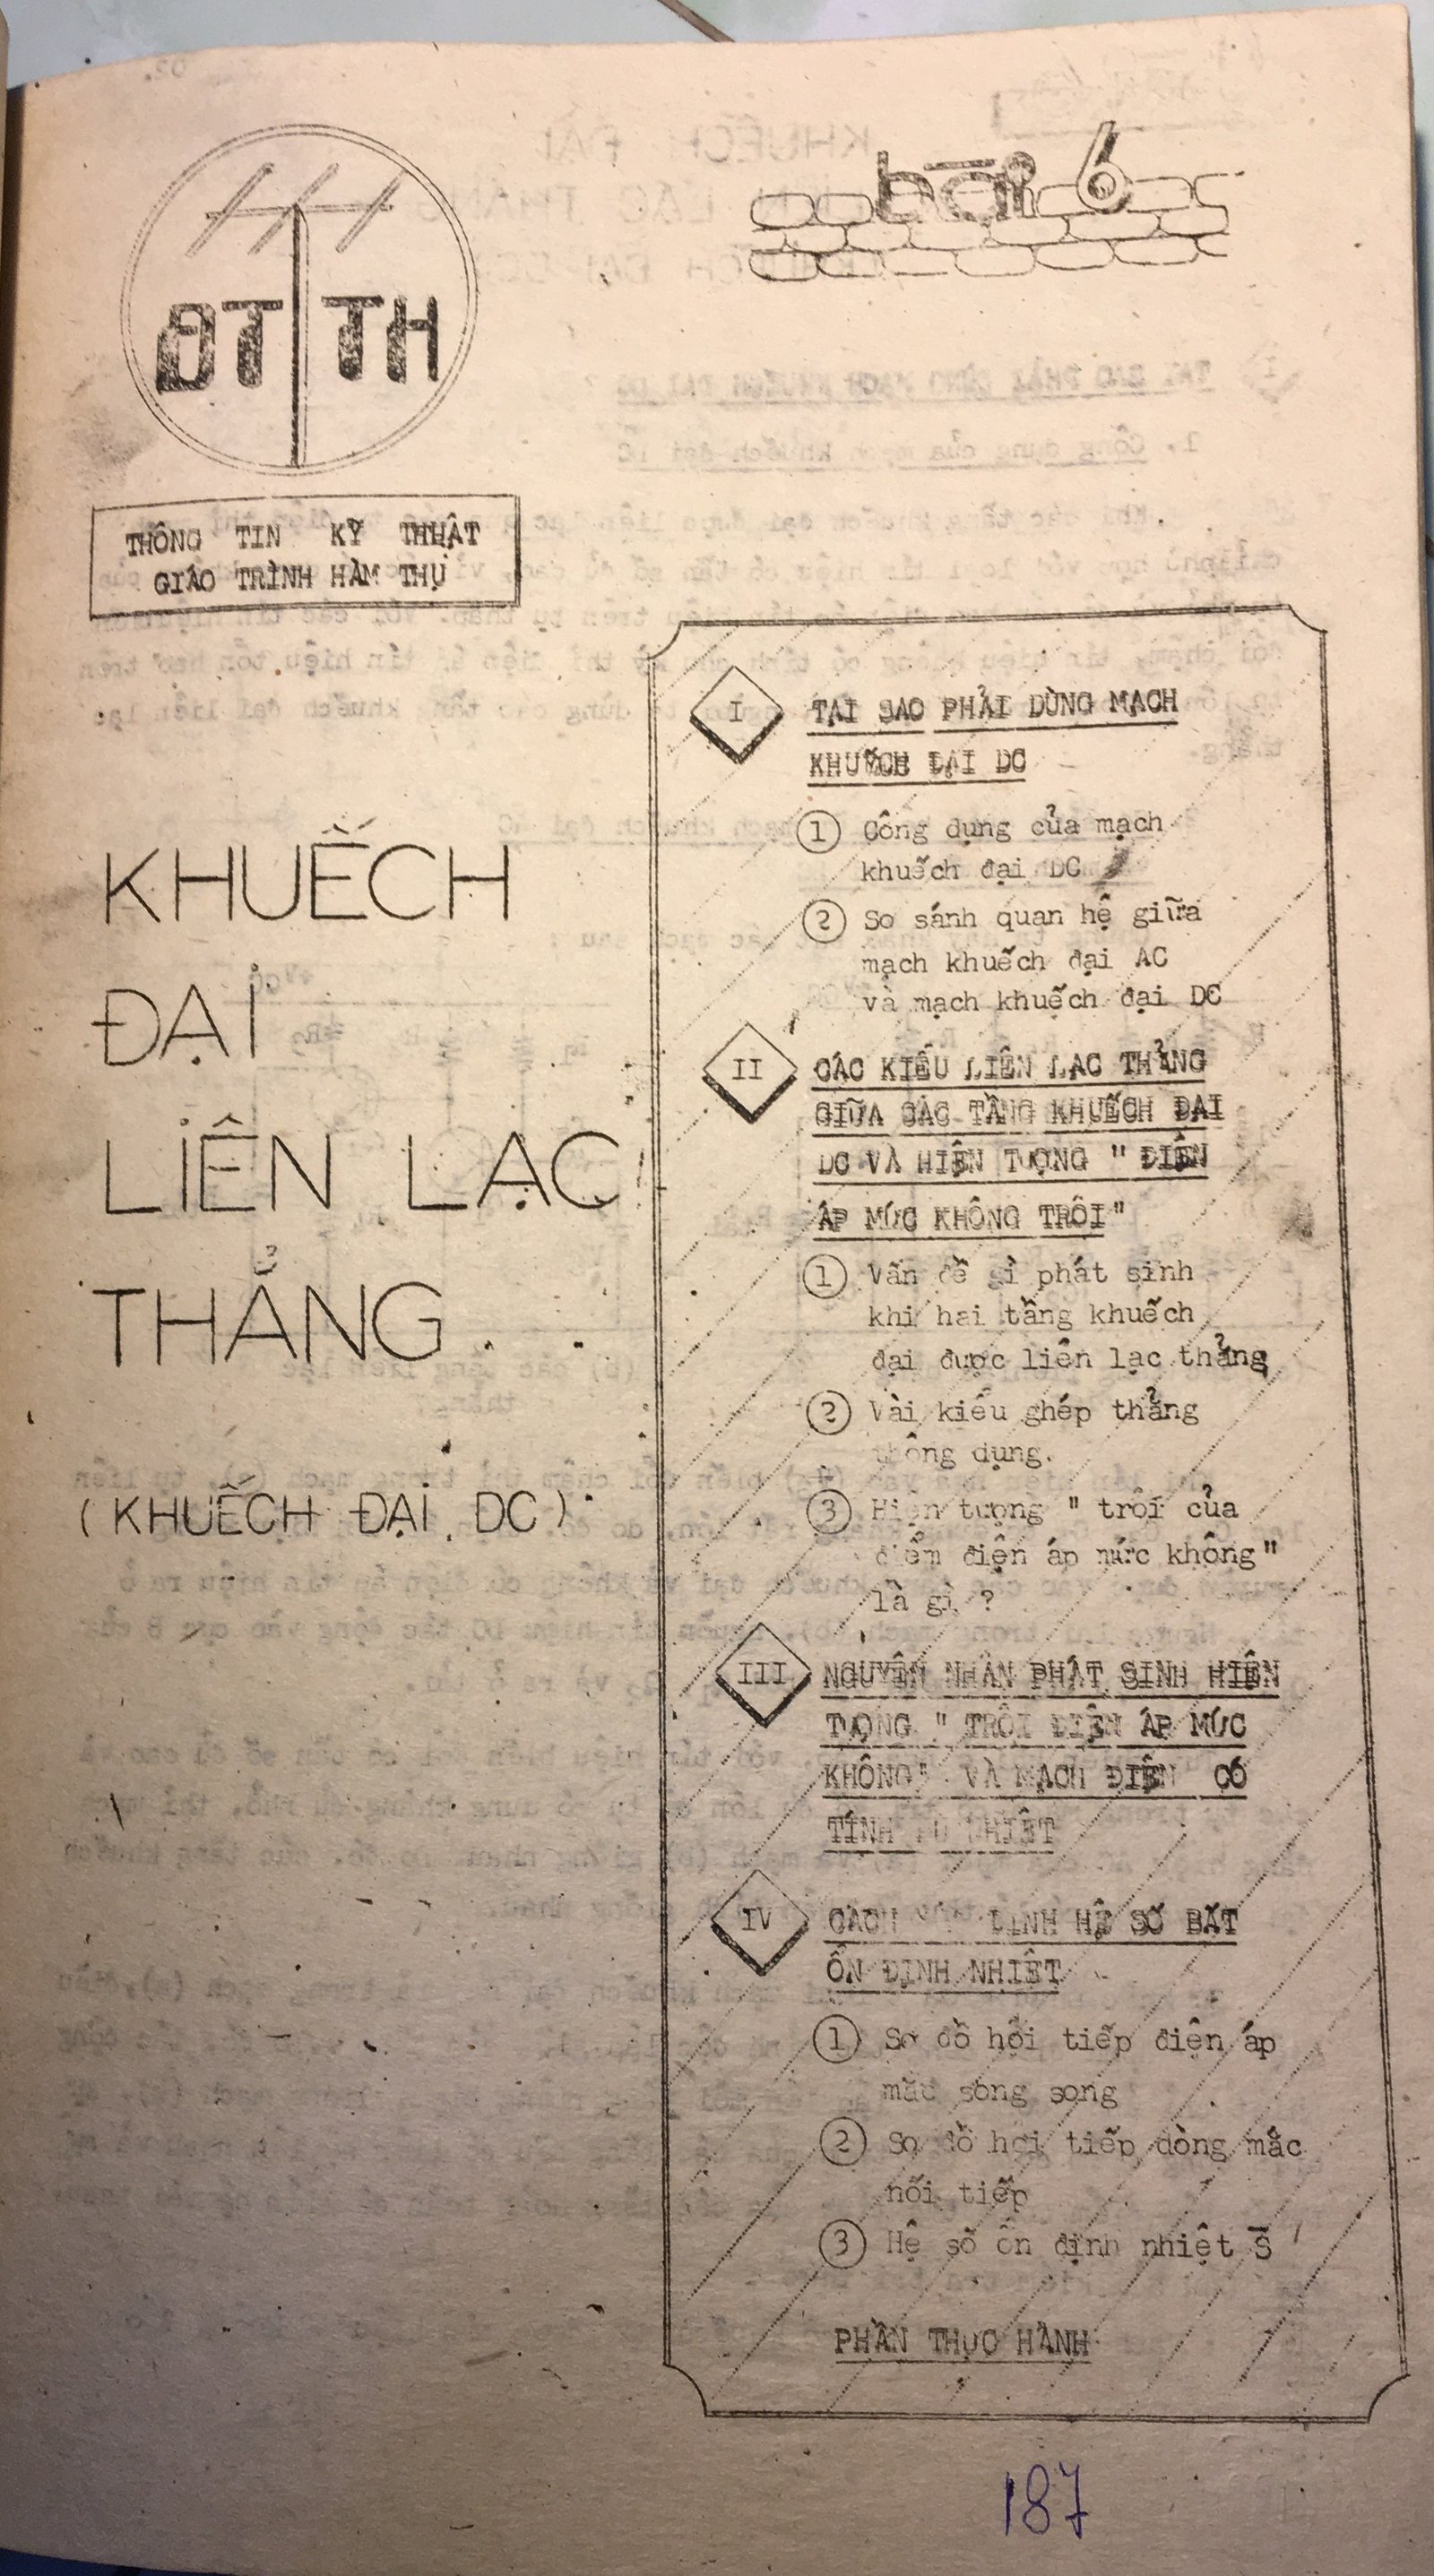 bài 6
ĐT TH
THÔNG TIN KỸ THUẬT
GIÁO TRÌNH HÀM THỤ
KHUẾCH
ĐẠI
LIÊN LẠC
THẲNG
(KHUẾCH ĐẠI DC)
I TẠI SAO PHẢI DÙNG MẠCH
KHUẾCH ĐẠI DC
1 Công dụng của mạch
khuếch đại DC
2 So sánh quan hệ giữa
mạch khuếch đại AC
và mạch khuếch đại DC
II CÁC KIỂU LIÊN LẠC THẲNG
GIỮA CÁC TẦNG KHUẾCH ĐẠI
DC VÀ HIỆN TƯỢNG " ĐIỆN
ÁP MỨC KHÔNG TRÔI"
1 Vấn đề gì phát sinh
khi hai tầng khuếch
đại được liên lạc thẳng
2 Vài kiểu ghép thẳng
thông dụng.
3 Hiện tượng " trôi của
điểm điện áp mức không"
là gì ?
III NGUYÊN NHÂN PHÁT SINH HIỆN
TƯỢNG " TRÔI ĐIỆN ÁP MỨC
KHÔNG" VÀ MẠCH ĐIỆN CÓ
TÍNH BÙ NHIỆT
IV CÁCH ĐỊNH HỆ SỐ BẤT
ỔN ĐỊNH NHIỆT
1 Sơ đồ hồi tiếp điện áp
mắc song song
2 Sơ đồ hồi tiếp dòng mắc
nối tiếp
3 Hệ số ổn định nhiệt S
PHẦN THỰC HÀNH
187